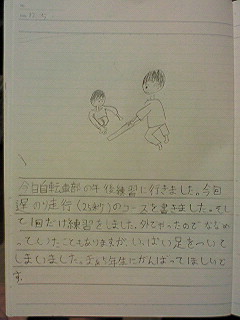 今日自転車部の午後練習に行きました。今回
遅のり走行(25秒)のコースを書きました。そし
て1回だけ練習をしました。外でやったのでななめ
っていたこともありますが、いっぱい足をついて
しまいました。5年生にがんばってほしいで
す。